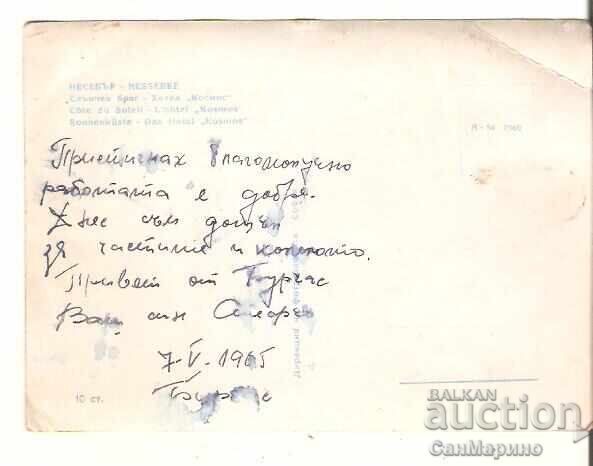 НЕСЕБЪР - NESSEBRE
Слънчев бряг - Хотел „Космос"
Côte du Soleil - L'hôtel „Kosmos"
Sonnenküste - Das Hotel „Kosmos"
М-54 7960
Пристигнах благополучно
работата е добра.
Днес съм дошъл
за частите и колелото.
Привет от Бургас
Ваш син
7-V-1965
Бургас
10 ст.
BALKAN
auction
СанМарино